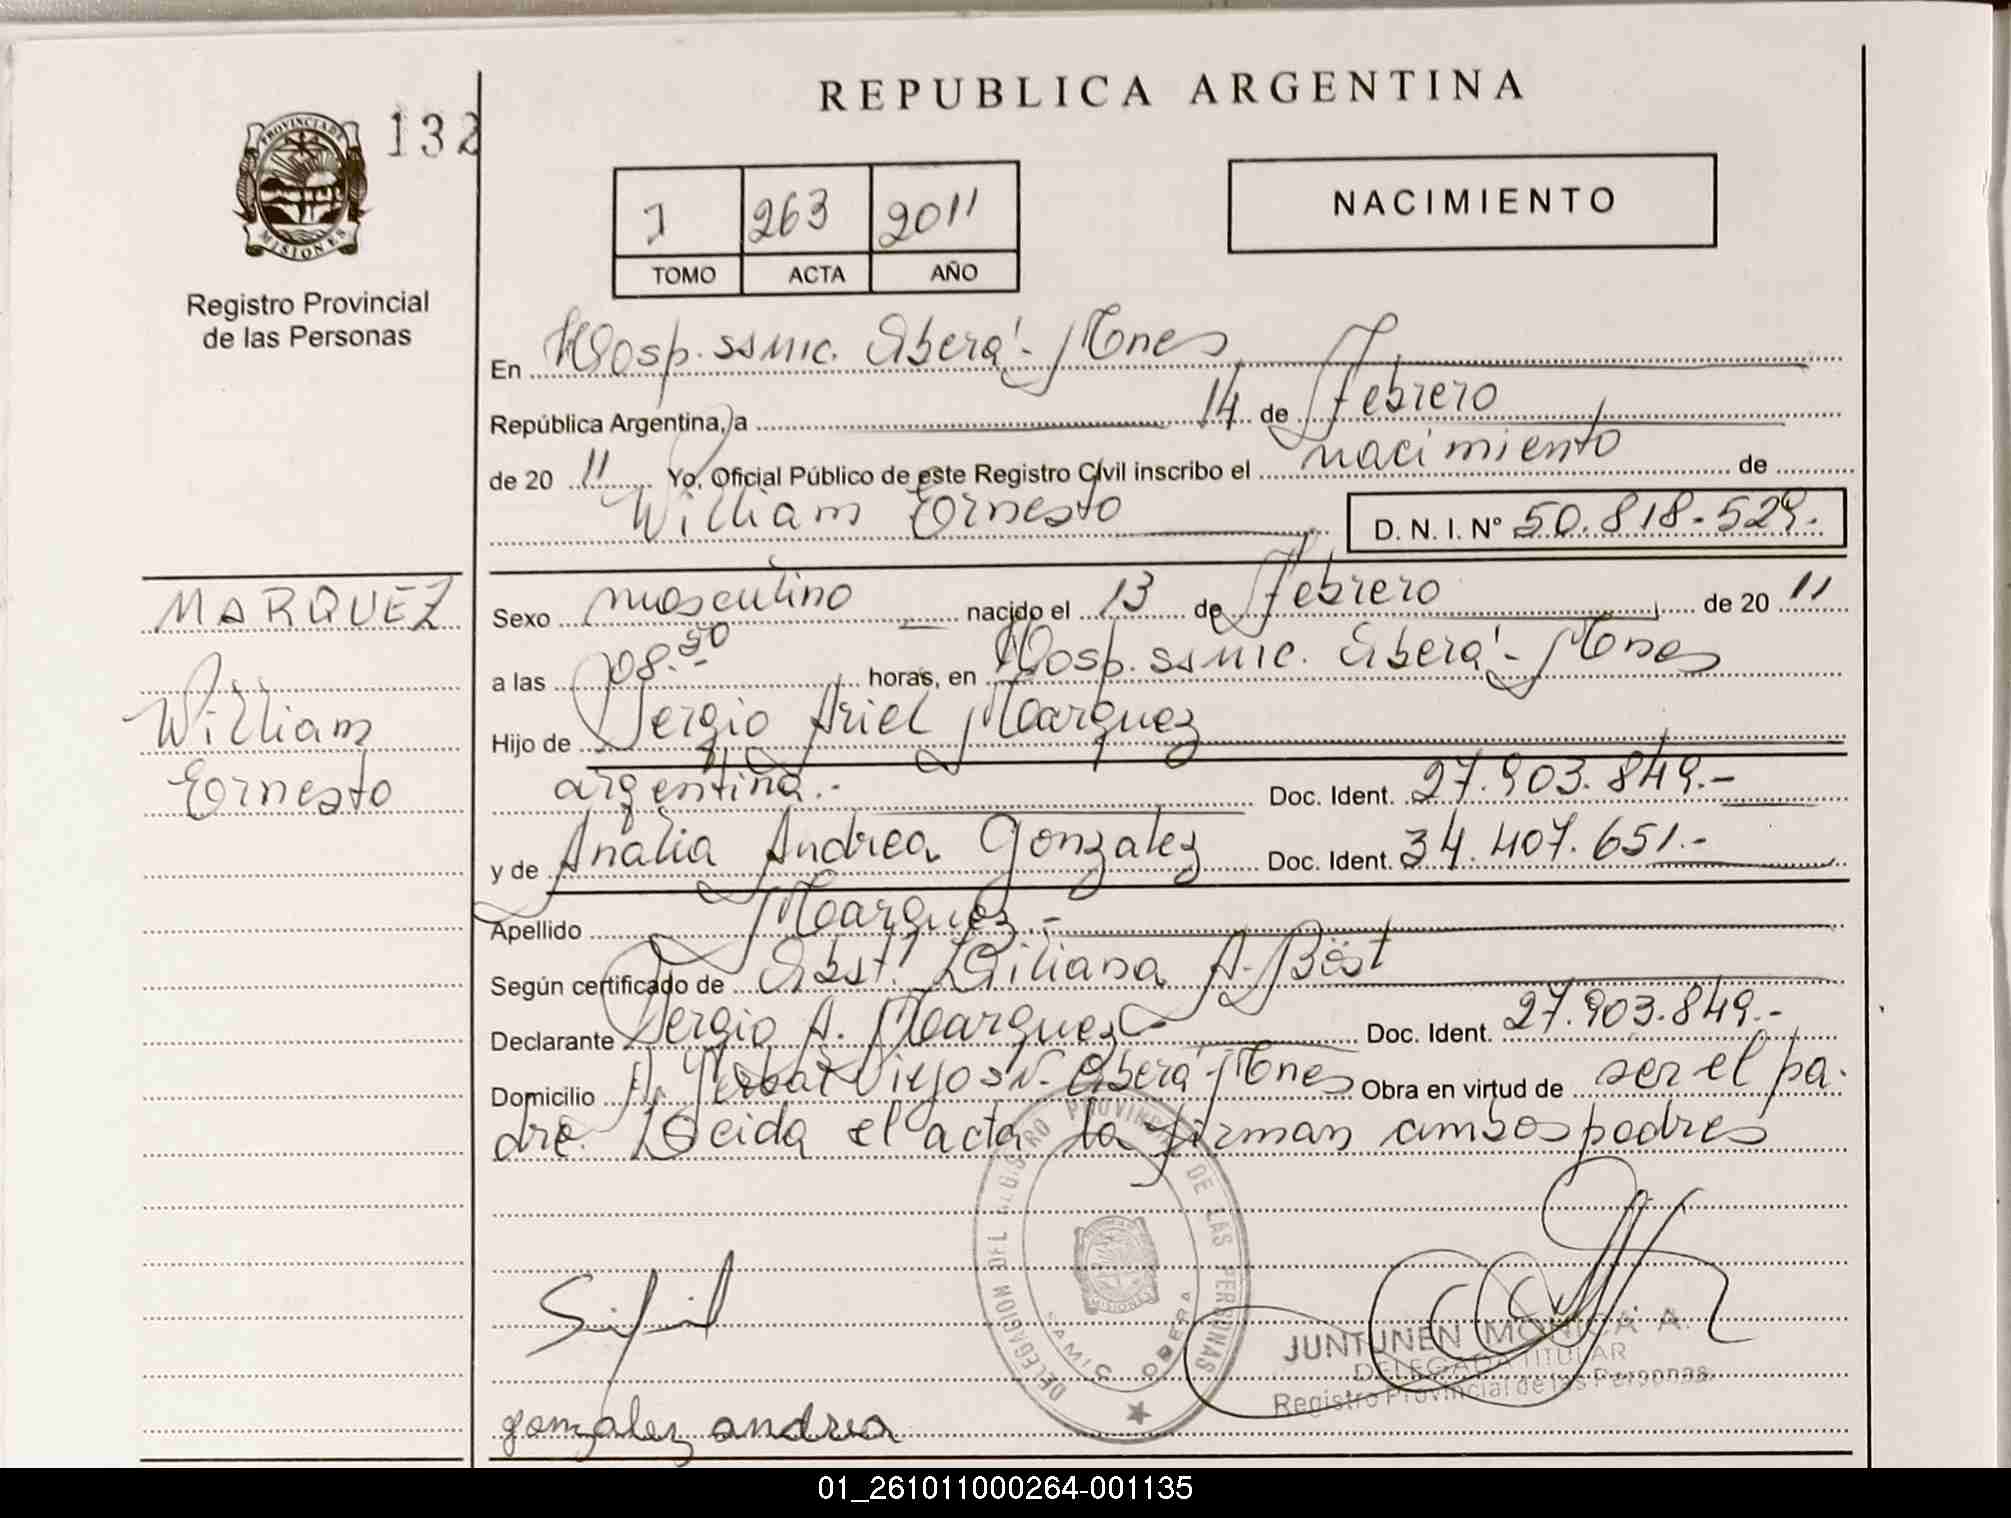 REPUBLICA ARGENTINA
PROVINCIA DE
MISIONES
132
Registro Provincial
de las Personas
1 263 2011
TOMO ACTA AÑO
NACIMIENTO
En Hosp. SSMIC. Oberá - Mnes
República Argentina, a 14 de Febrero
de 20 11 Yo, Oficial Público de este Registro Civil inscribo el nacimiento de
William Ernesto D. N. I. Nº 50.818.529.
MARQUEZ
William
Ernesto
Sexo masculino nacido el 13 de Febrero de 20 11
a las 08. horas, en Hosp. SSMIC. Oberá - Mnes
Hijo de Sergio Ariel Marquez
argentina.- Doc. Ident. 27.903.849.-
y de Analia Andrea Gonzalez Doc. Ident. 34.407.651.-
Apellido Marquez.-
Según certificado de Obst. Liliana A. Böst
Declarante Sergio A. Marquez - Doc. Ident. 27.903.849.-
Domicilio Viejo SN. Oberá - Mnes Obra en virtud de ser el pa-
dre. Leida el acta la firman ambos padres
DELEGACION DEL REGISTRO PROVINCIAL DE LAS PERSONAS
SAMIC OBERA
MISIONES
JUNTUNEN MONICA A.
DELEGADA TITULAR
Registro Provincial de las Personas
gonzalez andrea
01_261011000264-001135